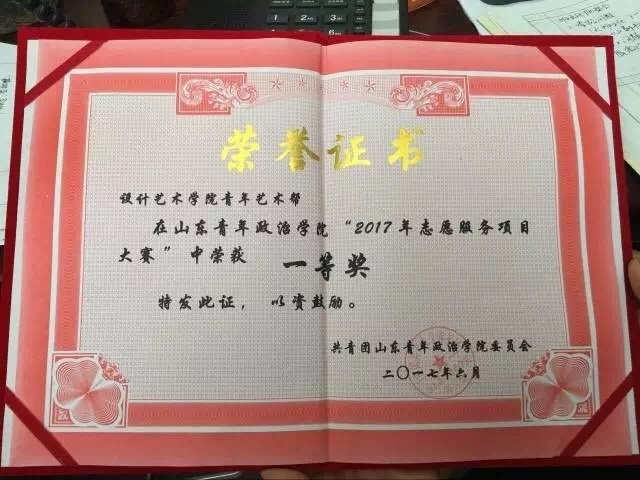 荣誉证书
设计艺术学院青年艺术帮
在山东青年政治学院“2017年志愿服务项目
大赛”中荣获 一等奖
特发此证，以资鼓励。
共青团山东青年政治学院委员会
二〇一七年六月